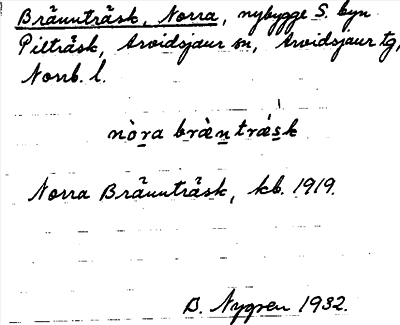 Brännträsk, Norra, nybygge S. byn
Pilträsk, Arvidsjaur sn, Arvidsjaur tg,
Norrb. l.
nòra brǽntrǽsk
Norra Brännträsk, kb. 1919.
B. Nygren 1932.